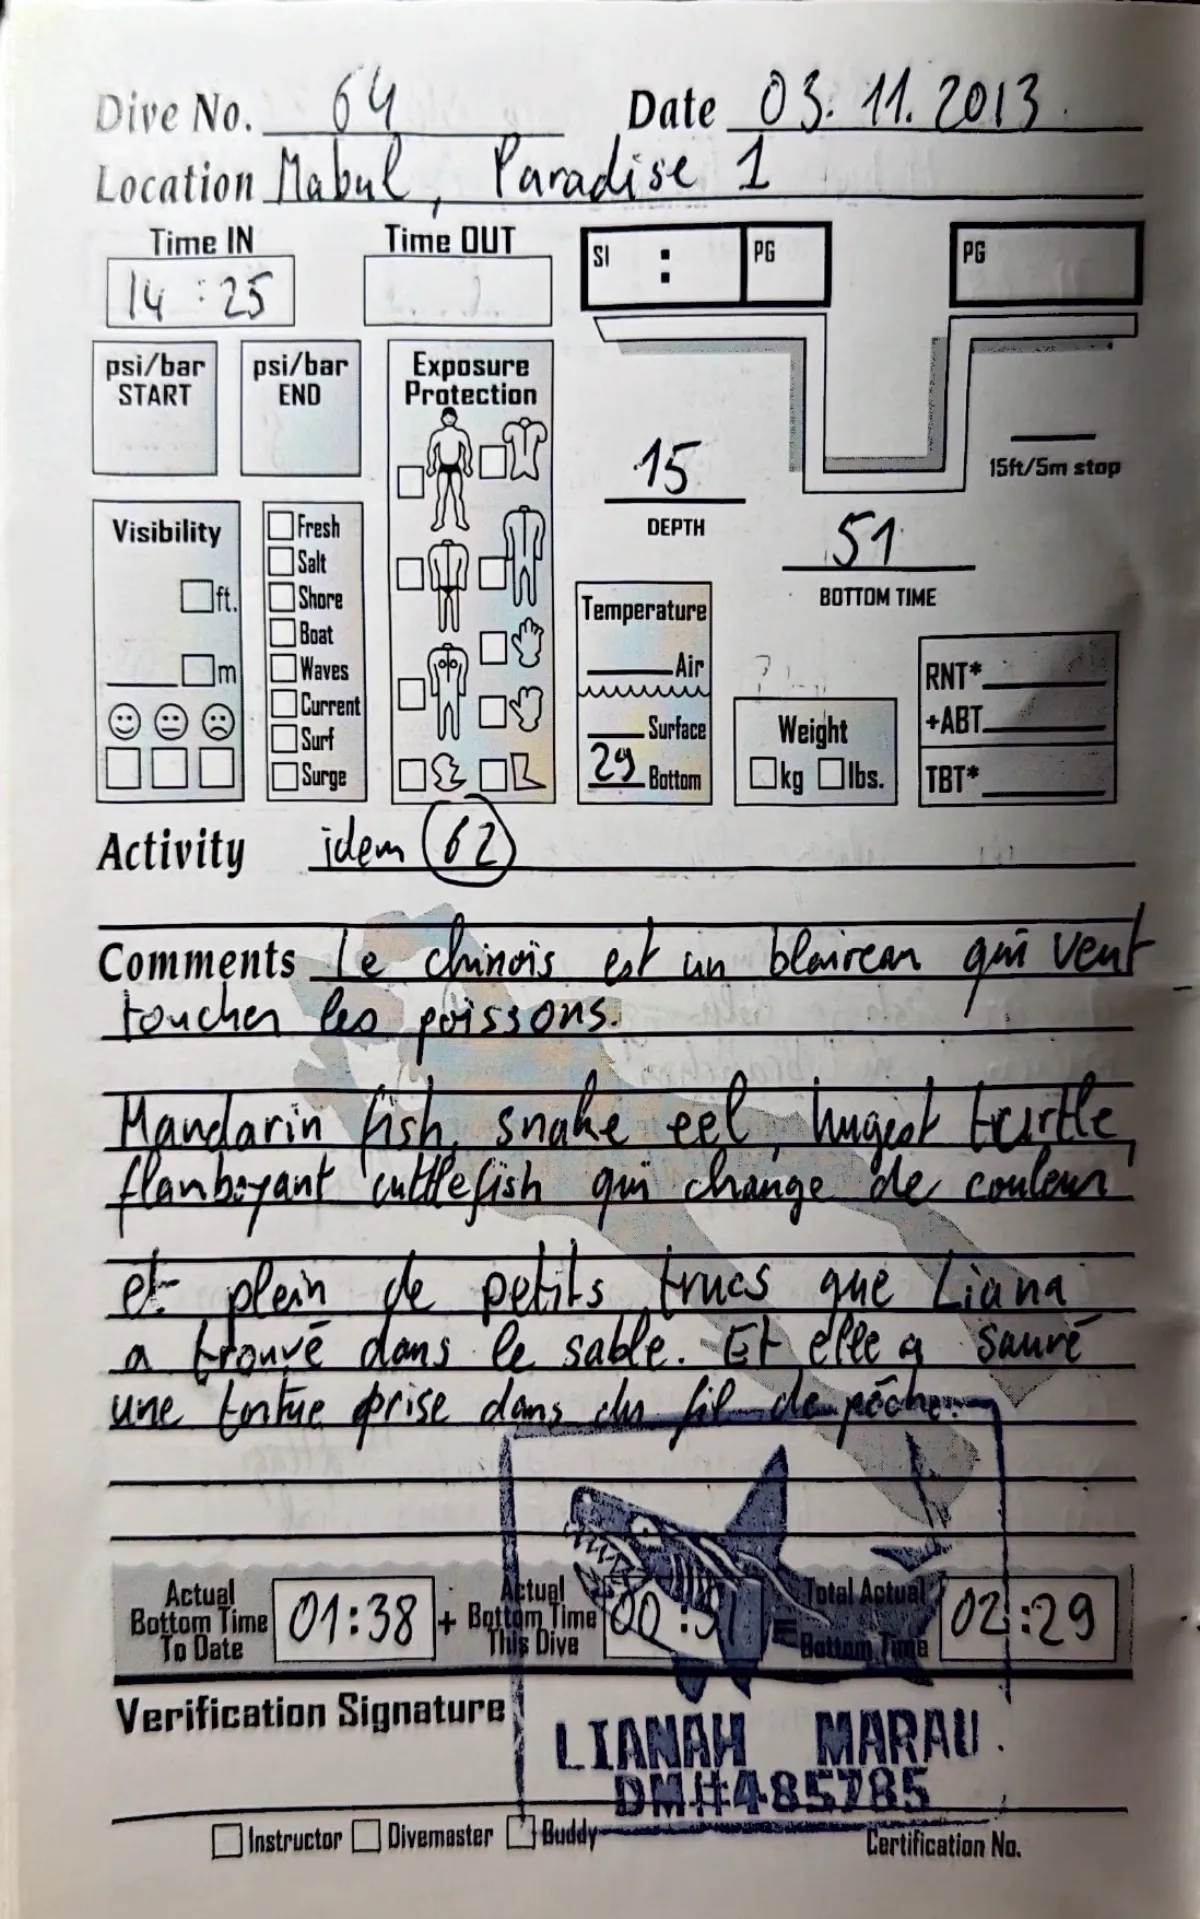 Dive No. 64 Date 03.11.2013.
Location Mabul, Paradise 1
Time IN Time OUT SI : PG PG
14 : 25
psi/bar START psi/bar END Exposure Protection
15 15ft/5m stop
DEPTH
51
BOTTOM TIME
Visibility
ft.
m
Fresh
Salt
Shore
Boat
Waves
Current
Surf
Surge
Temperature
Air
Surface
29 Bottom
Weight
kg lbs.
RNT*
+ABT
TBT*
Activity idem (62)
Comments Le chinois est un blaireau qui veut
toucher les poissons.
Mandarin fish, snake eel, hugest turtle,
flamboyant cuttlefish qui change de couleur
et plein de petits trucs que Liana
a trouvé dans le sable. Et elle a sauvé
une tortue prise dans du fil de pêche.
Actual Bottom Time To Date 01:38 + Actual Bottom Time This Dive 00:51 = Total Actual Bottom Time 02:29
Verification Signature
LIANAH MARAU.
DM#485785
Instructor Divemaster Buddy Certification No.